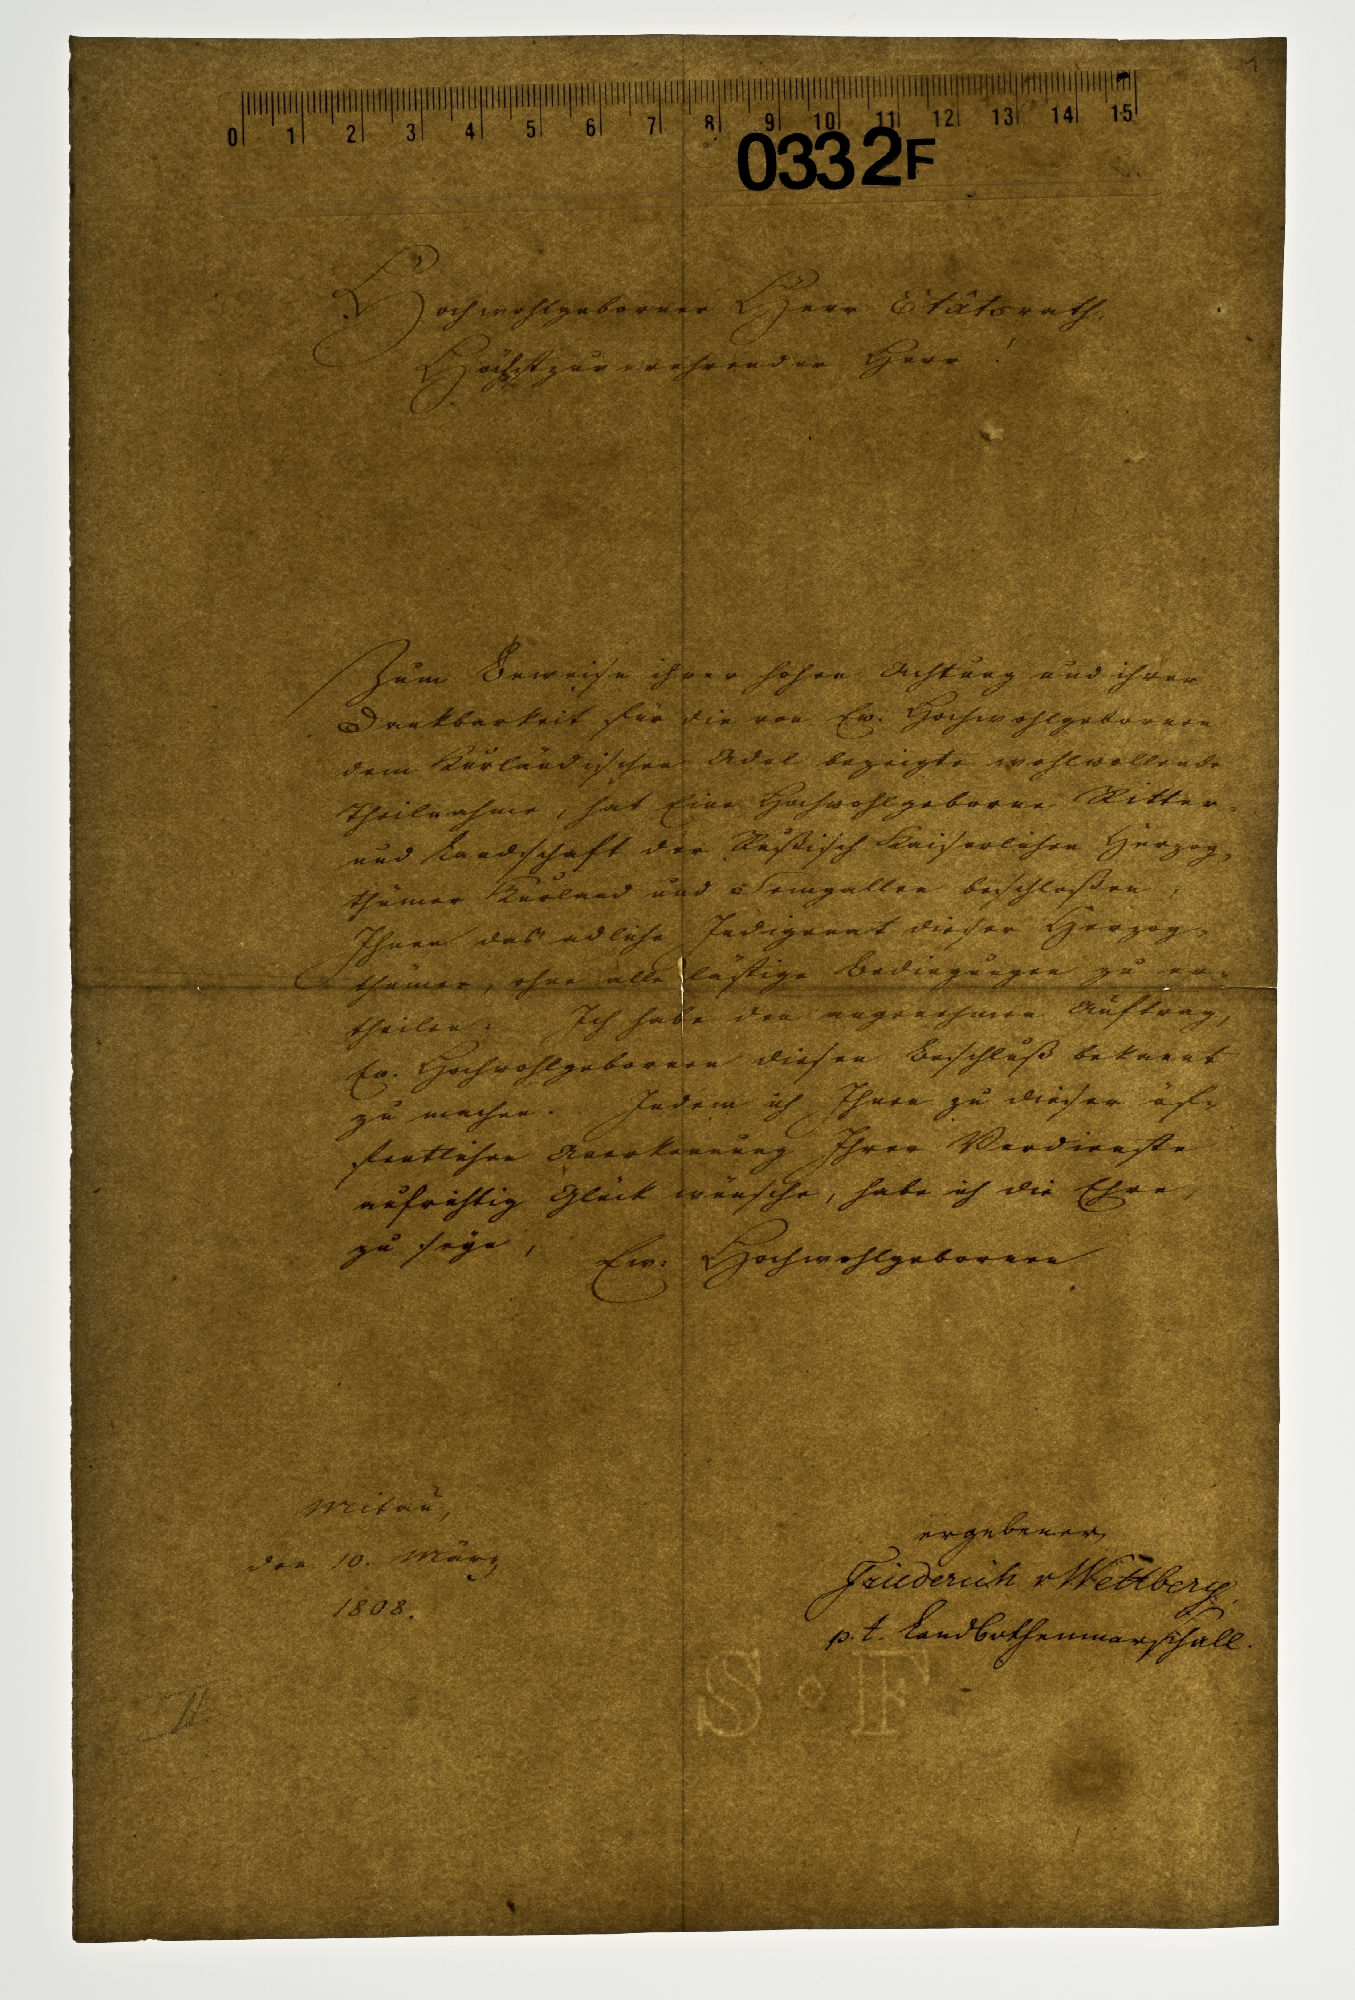 0 1 2 3 4 5 6 7 8 9 10 11 12 13 14 15
0332F
Hochwohlgeborner Herr Etâtsrath,
Höchstzuverehrender Herr!
Zum Beweise ihrer hohen Achtung und ihrer
Dankbarkeit für die von Ew. Hochwohlgebornen
dem Kurländischen Adel bezeigte wohlwollende
Theilnahme, hat Eine Hochwohlgeborne Ritter-
und Landschaft der Rußisch Kaiserlichen Herzog-
thümer Kurland und Semgallen beschloßen,
Ihnen das adliche Indigenat dieser Herzog-
thümer, ohne alle lästige Bedingungen zu er-
theilen. Ich habe den angenehmen Auftrag,
Ew. Hochwohlgebornen diesen Beschluß bekannt
zu machen. Indem ich Ihnen zu dieser öf-
fentlichen Anerkennung Ihrer Verdienste
aufrichtig Glück wünsche, habe ich die Ehre,
zu seyn,
Ew: Hochwohlgebornen
Mitau,
den 10. März
1808.
ergebener
Friederich v Wettberg,
p. t. Landbothenmarschall.
S F